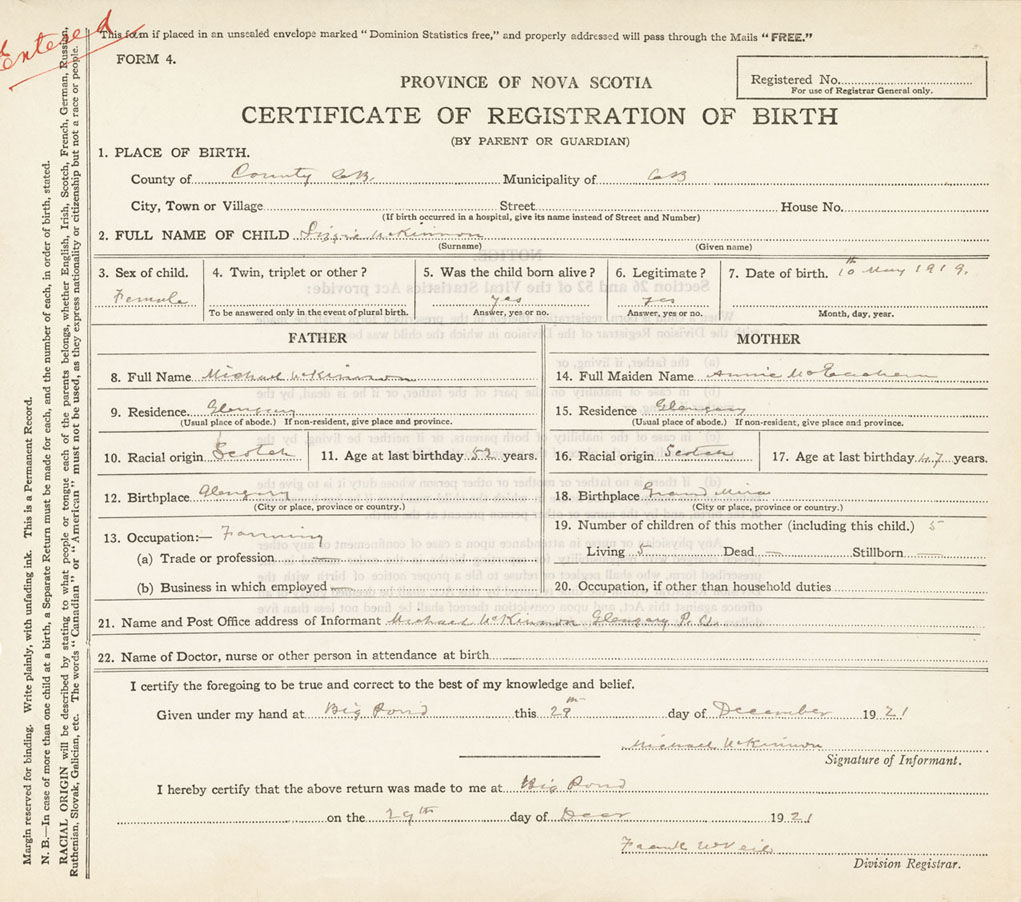 Entered
This form if placed in an unsealed envelope marked "Dominion Statistics free," and properly addressed will pass through the Mails "FREE."
FORM 4.
PROVINCE OF NOVA SCOTIA
Registered No.
For use of Registrar General only.
CERTIFICATE OF REGISTRATION OF BIRTH
(BY PARENT OR GUARDIAN)
1. PLACE OF BIRTH.
County of County C.B. Municipality of CB
City, Town or Village Street House No.
(If birth occurred in a hospital, give its name instead of Street and Number)
2. FULL NAME OF CHILD Lizzie McKinnon
(Surname) (Given name)
3. Sex of child. 4. Twin, triplet or other? 5. Was the child born alive? 6. Legitimate? 7. Date of birth. 10th May 1919.
Female yes yes
To be answered only in the event of plural birth. Answer, yes or no. Answer, yes or no. Month, day, year.
FATHER
8. Full Name Michael McKinnon
9. Residence Glengary
(Usual place of abode.) If non-resident, give place and province.
10. Racial origin Scotch 11. Age at last birthday 52 years.
12. Birthplace Glengary
(City or place, province or country.)
13. Occupation:— Farming
(a) Trade or profession —
(b) Business in which employed —
MOTHER
14. Full Maiden Name Annie McEachern
15. Residence Glengary
(Usual place of abode.) If non-resident, give place and province.
16. Racial origin Scotch 17. Age at last birthday 47 years.
18. Birthplace Grand Mira
(City or place, province or country.)
19. Number of children of this mother (including this child.) 5
Living 5 Dead — Stillborn —
20. Occupation, if other than household duties
21. Name and Post Office address of Informant Michael McKinnon Glengary P.O.
22. Name of Doctor, nurse or other person in attendance at birth
I certify the foregoing to be true and correct to the best of my knowledge and belief.
Given under my hand at Big Pond this 29th day of December 1921
Michael McKinnon
Signature of Informant.
I hereby certify that the above return was made to me at Big Pond
on the 29th day of Decr 1921
Frank McNeil
Division Registrar.
Margin reserved for binding. Write plainly, with unfading ink. This is a Permanent Record.
N. B.—In case of more than one child at a birth, a Separate Return must be made for each, and the number of each, in order of birth, stated.
RACIAL ORIGIN will be described by stating to what people or tongue each of the parents belongs, whether English, Irish, Scotch, French, German, Russian,
Ruthenian, Slovak, Galician, etc. The words "Canadian" or "American" must not be used, as they express nationality or citizenship but not a race or people.